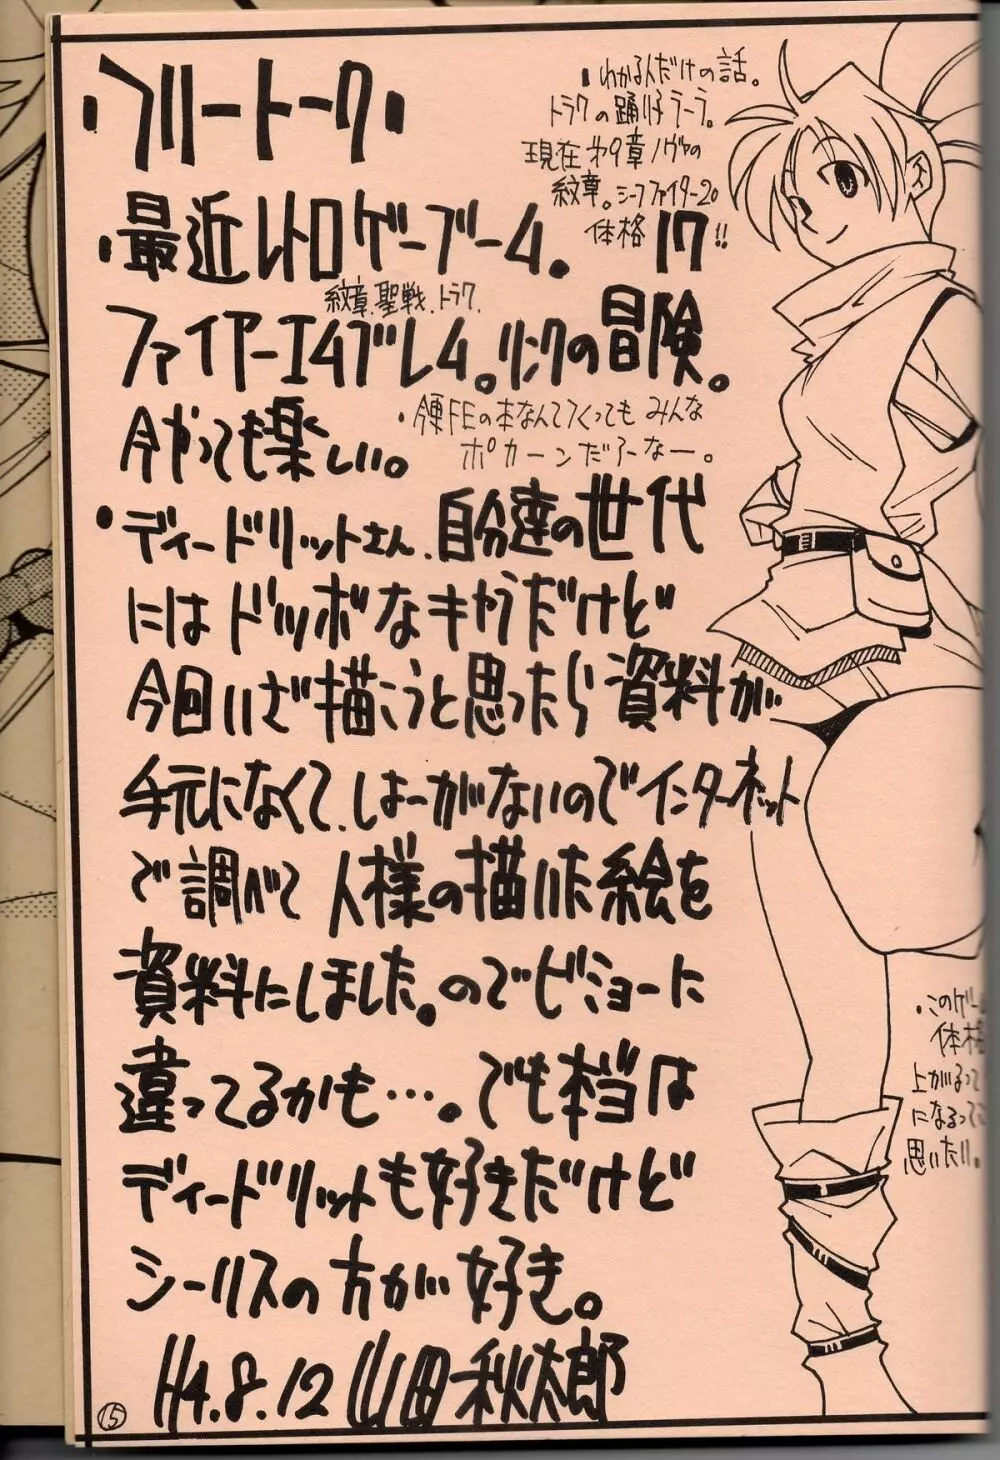 ・フリートーク・
・わかる人だけの話。
トラクの踊り子ラーラ。
現在 第9章ノヴァの
紋章。シーフファイター20
体格 17!!
・最近レトロゲーブーム。
紋章.聖戦.トラク.
ファイアーエムブレム。リンクの冒険。
今やっても楽しい。
・今更FEの本なんてつくっても みんな
ポカーンだろーなー。
・ディードリットさん、自分達の世代
にはドツボなキャラだけど
今回いざ描こうと思ったら資料が
手元になくて、しょーがないのでインターネット
で調べて 人様の描いた絵を
資料にしました。のでビミョーに
違ってるかも…。でも本当は
ディードリットも好きだけど
シーリスの方が好き。
H4.8.12 山田秋太郎
・このゲー
体格
上がるって
になるって
思いたい。
15